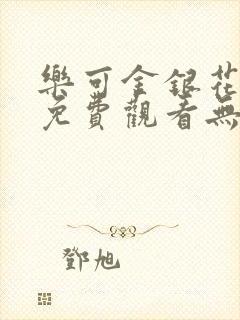 樂可金銀花
免費觀看無
鄧旭